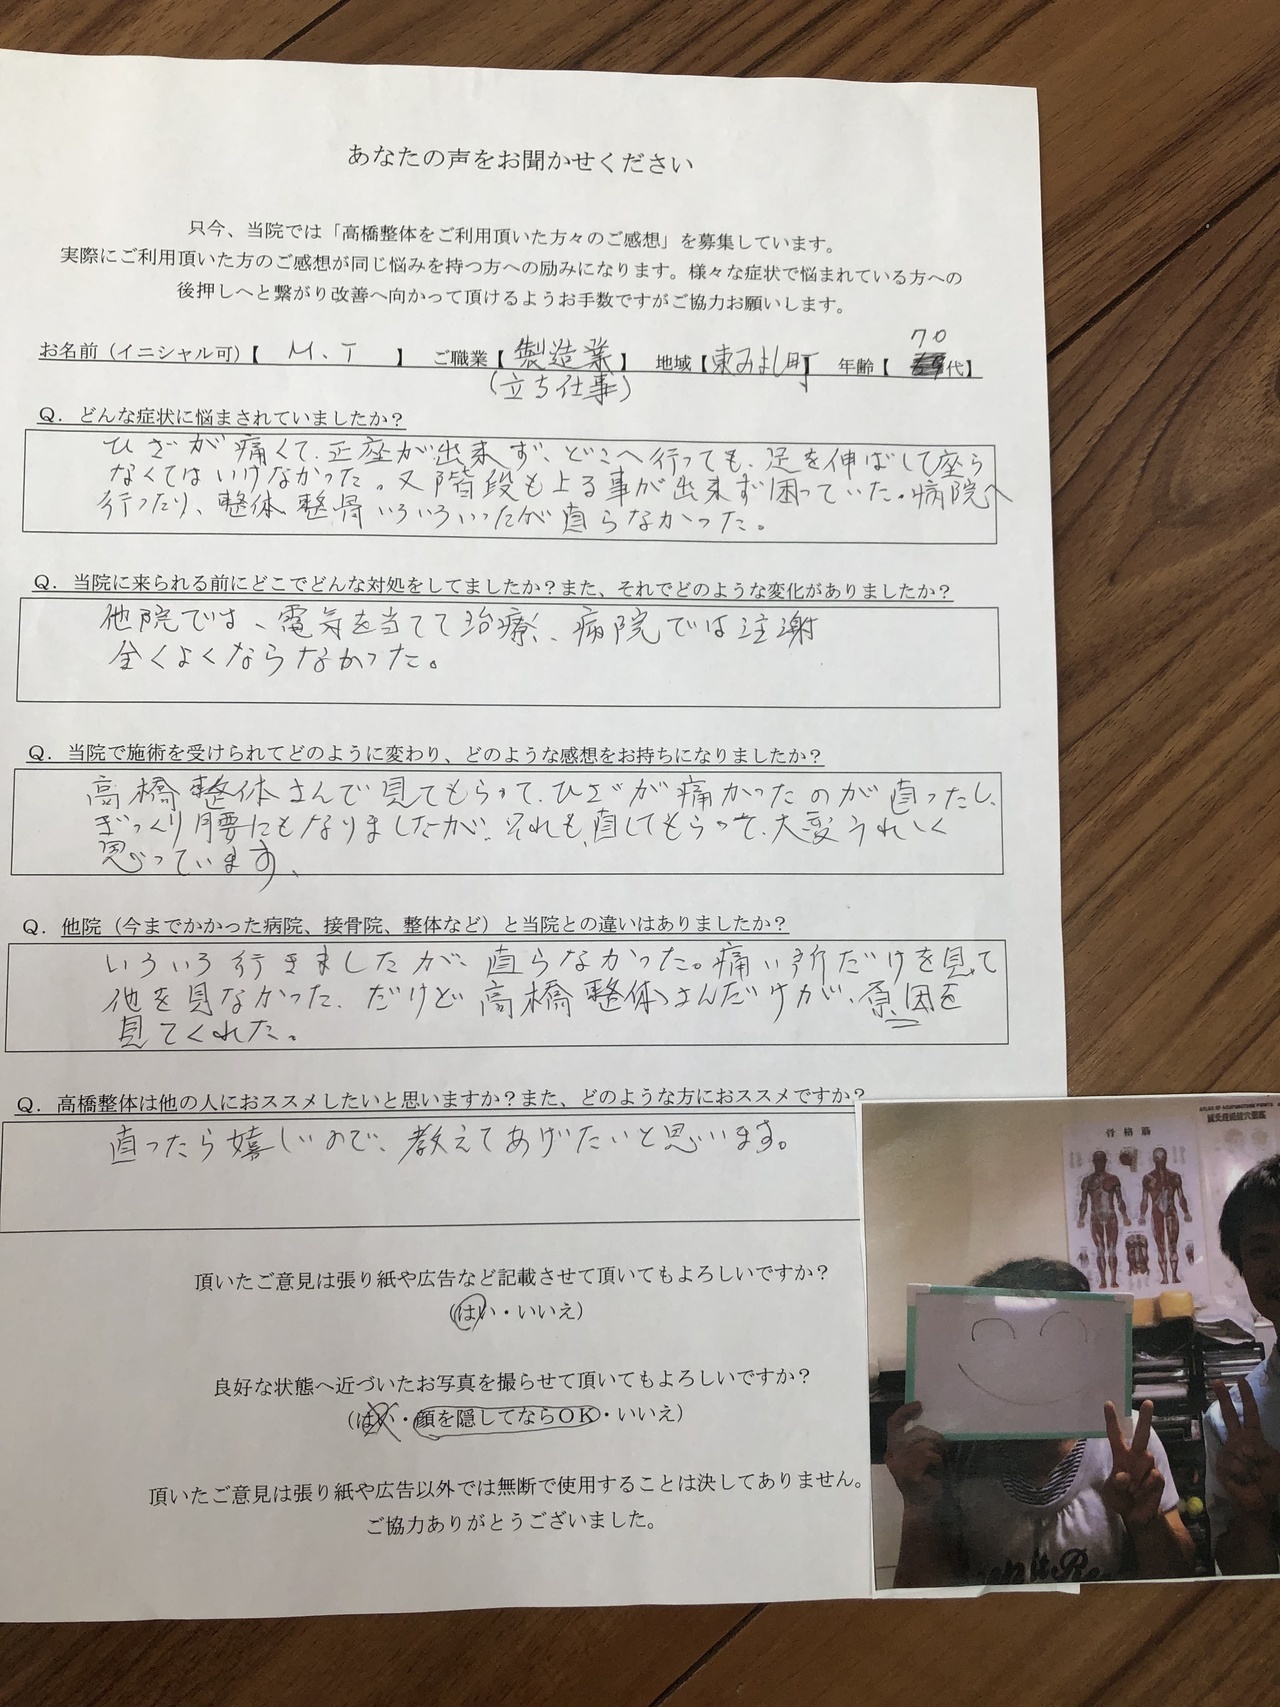 あなたの声をお聞かせください
只今、当院では「高橋整体をご利用頂いた方々のご感想」を募集しています。
実際にご利用頂いた方のご感想が同じ悩みを持つ方への励みになります。様々な症状で悩まれている方への
後押しへと繋がり改善へ向かって頂けるようお手数ですがご協力お願いします。
お名前(イニシャル可)【 M.T 】 ご職業【製造業】 地域【東みよし町】 年齢【 70代】
(立ち仕事)
Q. どんな症状に悩まされていましたか?
ひざが痛くて、正座が出来ず、どこへ行っても、足を伸ばして座ら
なくてはいけなかった。又階段も上る事が出来ず困っていた。病院へ
行ったり、整体整骨いろいろいったが直らなかった。
Q. 当院に来られる前にどこでどんな対処をしてましたか?また、それでどのような変化がありましたか?
他院では、電気を当てて治療、病院では注謝
全くよくならなかった。
Q. 当院で施術を受けられてどのように変わり、どのような感想をお持ちになりましたか?
高橋整体さんで見てもらって、ひざが痛かったのが直ったし、
ぎっくり腰にもなりましたが、それも、直してもらって、大変うれしく
思っています、
Q. 他院(今までかかった病院、接骨院、整体など)と当院との違いはありましたか?
いろいろ行きましたが、直らなかった。痛い所だけを見て
他を見なかった、だけど高橋整体さんだけが、原因を
見てくれた。
Q. 高橋整体は他の人におススメしたいと思いますか?また、どのような方におススメですか?
直ったら嬉しいので、教えてあげたいと思います。
頂いたご意見は張り紙や広告など記載させて頂いてもよろしいですか?
(はい・いいえ)
良好な状態へ近づいたお写真を撮らせて頂いてもよろしいですか?
(はい・顔を隠してならOK・いいえ)
頂いたご意見は張り紙や広告以外では無断で使用することは決してありません。
ご協力ありがとうございました。
骨格筋